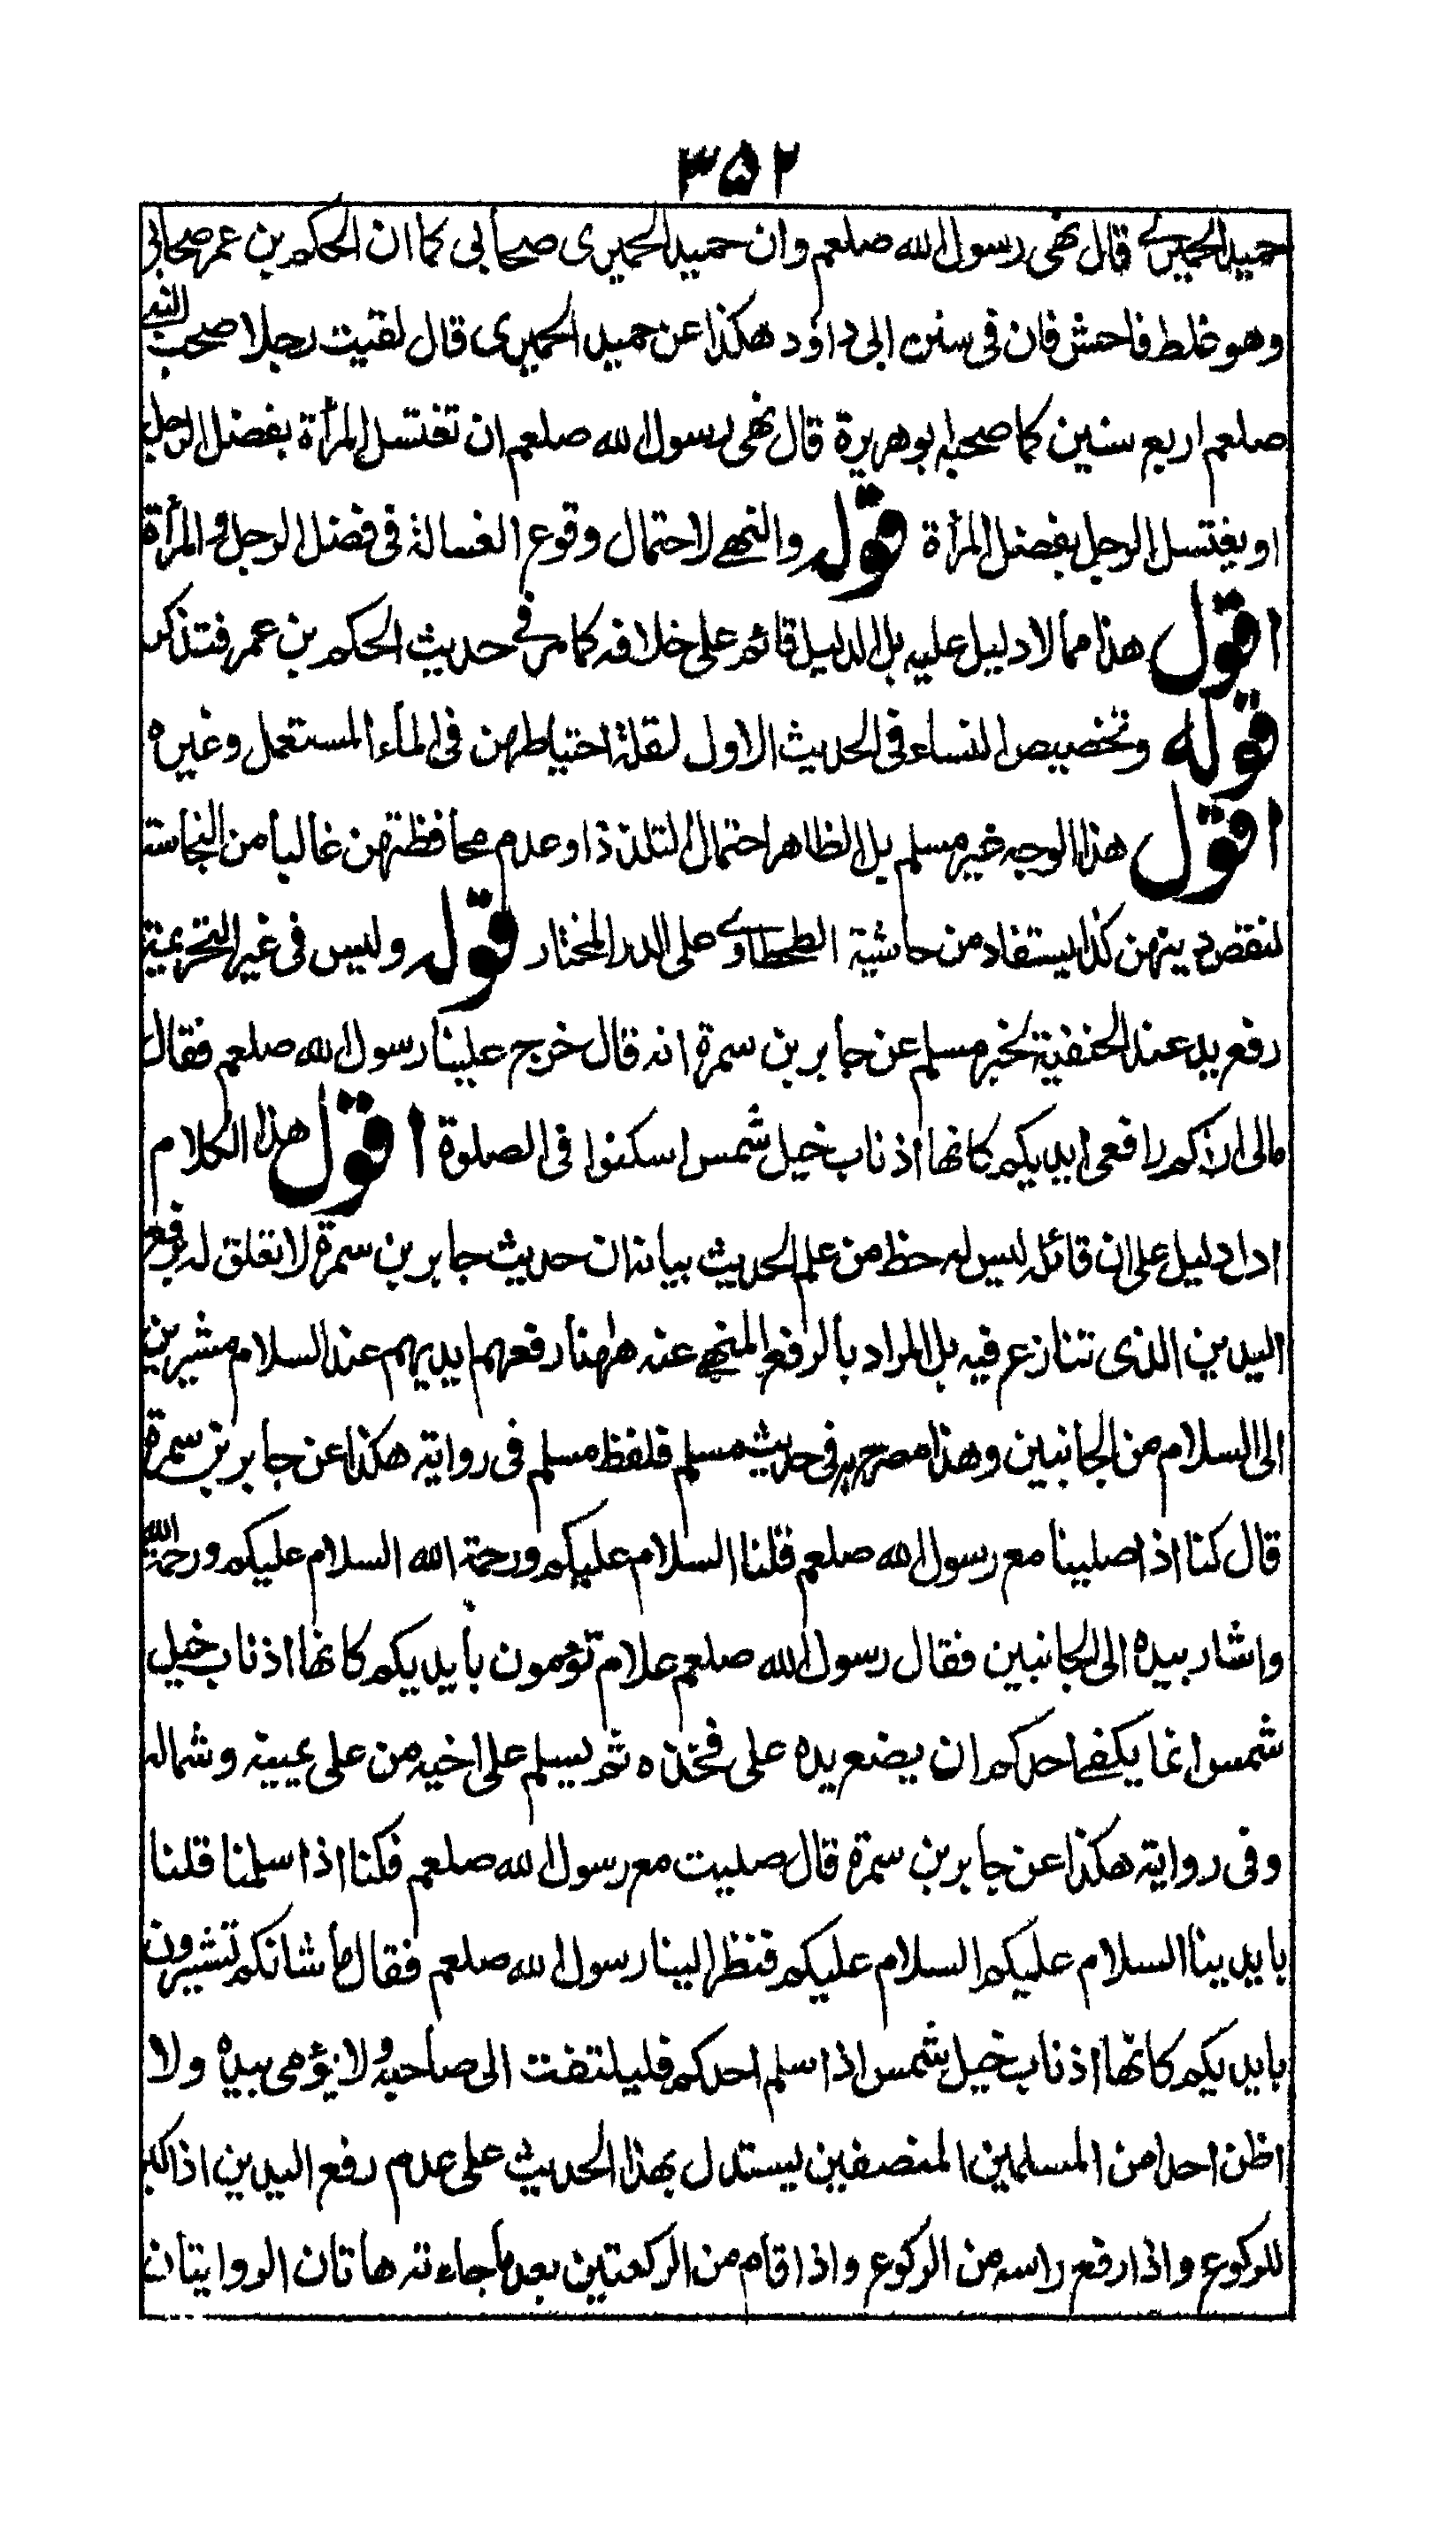 ۳۵۲
حميد الحميري قال نهى رسول الله صلعم وان حميد الحميرى صحابى كما ان الحكم بن عمر صحابى
وهو غلط فاحش فان فى سنن ابى داؤد هكذا عن حميد الحميرى قال لقيت رجلا صحب النبي
صلعم اربع سنين كما صحبه ابو هريرة قال نهى رسول الله صلعم ان تغتسل المرأة بفضل الرجل
او يغتسل الرجل بفضل المرأة قوله والنهي لاحتمال وقوع الغسالة فى فضل الرجل والمرأة
اقول هذا مما لا دليل عليه بل الدليل قائم على خلافه كما مر في حديث الحكم بن عمر فتذكر
قوله وتخصيص النساء فى الحديث الاول لقلة احتياطهن فى الماء المستعمل وغيره
اقول هذا الوجه غير مسلم بل الظاهر احتمال التلذذ او عدم محافظتهن غالبا من النجاسة
لنقص دينهن كذا يستفاد من حاشية الطحطاوي على الدر المختار قوله وليس فى غير التحريمة
رفع يد عند الحنفية لخبر مسلم عن جابر بن سمرة انه قال خرج علينا رسول الله صلعم فقال
مالى اراكم رافعى ايديكم كانها اذناب خيل شمس اسكنوا فى الصلوة اقول هذا الكلام
ادل دليل على ان قائله ليس له حظ من علم الحديث بيانه ان حديث جابر بن سمرة لا تعلق له برفع
اليدين الذى تنازع فيه بل المراد بالرفع المنهي عنه ههنا رفعهم ايديهم عند السلام مشيرين
الى السلام من الجانبين وهذا مصرح به فى حديث مسلم فلفظ مسلم فى رواية هكذا عن جابر بن سمرة
قال كنا اذا صلينا مع رسول الله صلعم قلنا السلام عليكم ورحمة الله السلام عليكم ورحمة الله
واشار بيده الى الجانبين فقال رسول الله صلعم علام تؤمون بأيديكم كانها اذناب خيل
شمس انما يكفي احدكم ان يضع يده على فخذه ثم يسلم على اخيه من على يمينه وشماله
وفى رواية هكذا عن جابر بن سمرة قال صليت مع رسول الله صلعم فكنا اذا سلمنا قلنا
بايدينا السلام عليكم السلام عليكم فنظر الينا رسول الله صلعم فقال ما شانكم تشيرون
بايديكم كانها اذناب خيل شمس اذا سلم احدكم فليلتفت الى صاحبه ولا يؤمى بيده ولا
اظن احدا من المسلمين المنصفين يستدل بهذا الحديث على عدم رفع اليدين اذا كبر
للركوع واذا رفع راسه من الركوع واذا قام من الركعتين بعد ما جاءته هاتان الروايتان